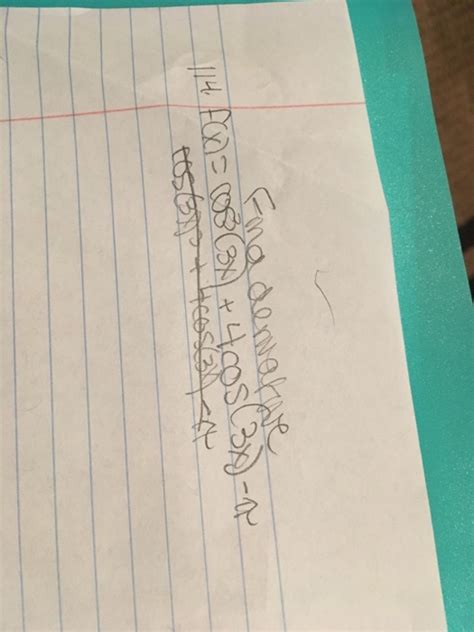 Find derivative
114. f(x) = cos(3x) + 4cos(3x) - π
cos(3x) + 4cos(3x) - π